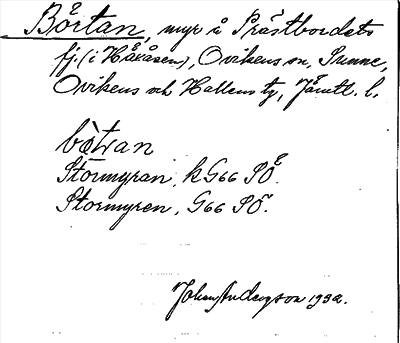 Börtan, myr å Prästbordets
fj. (i Håkåsen), Ovikens sn, Sunne,
Ovikens och Hallens tg, Jämtl. l.
bò̀tran
Stormyran, k G66 SÖ.
Stormyren, G66 SÖ.
Johan Anderson 1932.